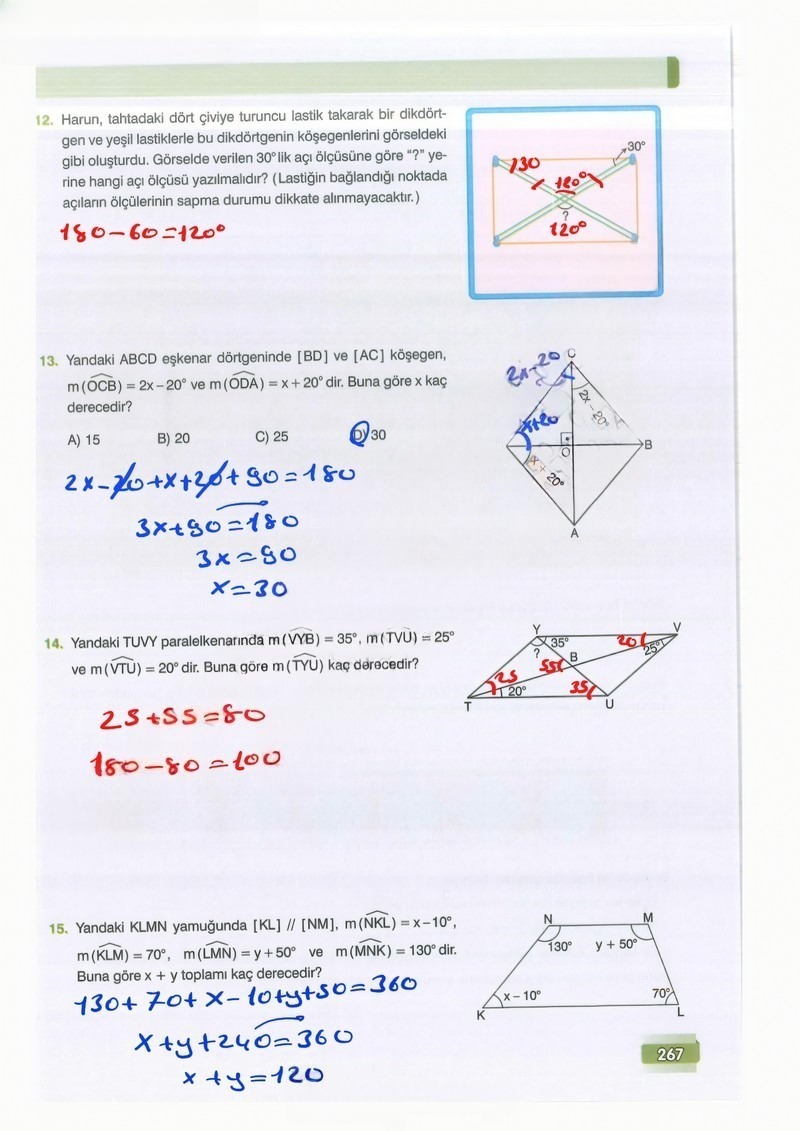 12. Harun, tahtadaki dört çiviye turuncu lastik takarak bir dikdört-
gen ve yeşil lastiklerle bu dikdörtgenin köşegenlerini görseldeki
gibi oluşturdu. Görselde verilen 30° lik açı ölçüsüne göre "?" ye-
rine hangi açı ölçüsü yazılmalıdır? (Lastiğin bağlandığı noktada
açıların ölçülerinin sapma durumu dikkate alınmayacaktır.)
180-60=120°
30°
130
120°
?
120°
13. Yandaki ABCD eşkenar dörtgeninde [BD] ve [AC] köşegen,
m(OCB) = 2x – 20° ve m(ODA) = x + 20° dir. Buna göre x kaç
derecedir?
A) 15 B) 20 C) 25 D) 30
2x-20+x+20+90=180
3x+90=180
3x=90
x=30
C
2x-20
2x – 20°
x+20
O
B
x + 20°
A
14. Yandaki TUVY paralelkenarında m(VYB) = 35°, m(TVU) = 25°
ve m(VTU) = 20° dir. Buna göre m(TYU) kaç derecedir?
25+55=80
180-80=100
Y
V
35°
20
25°
?
55
B
25
20°
35
T
U
15. Yandaki KLMN yamuğunda [KL] // [NM], m(NKL) = x – 10°,
m(KLM) = 70°, m(LMN) = y + 50° ve m(MNK) = 130° dir.
Buna göre x + y toplamı kaç derecedir?
130+70+x-10+y+50=360
x+y+240=360
x+y=120
N
M
130°
y + 50°
x – 10°
70°
K
L
267